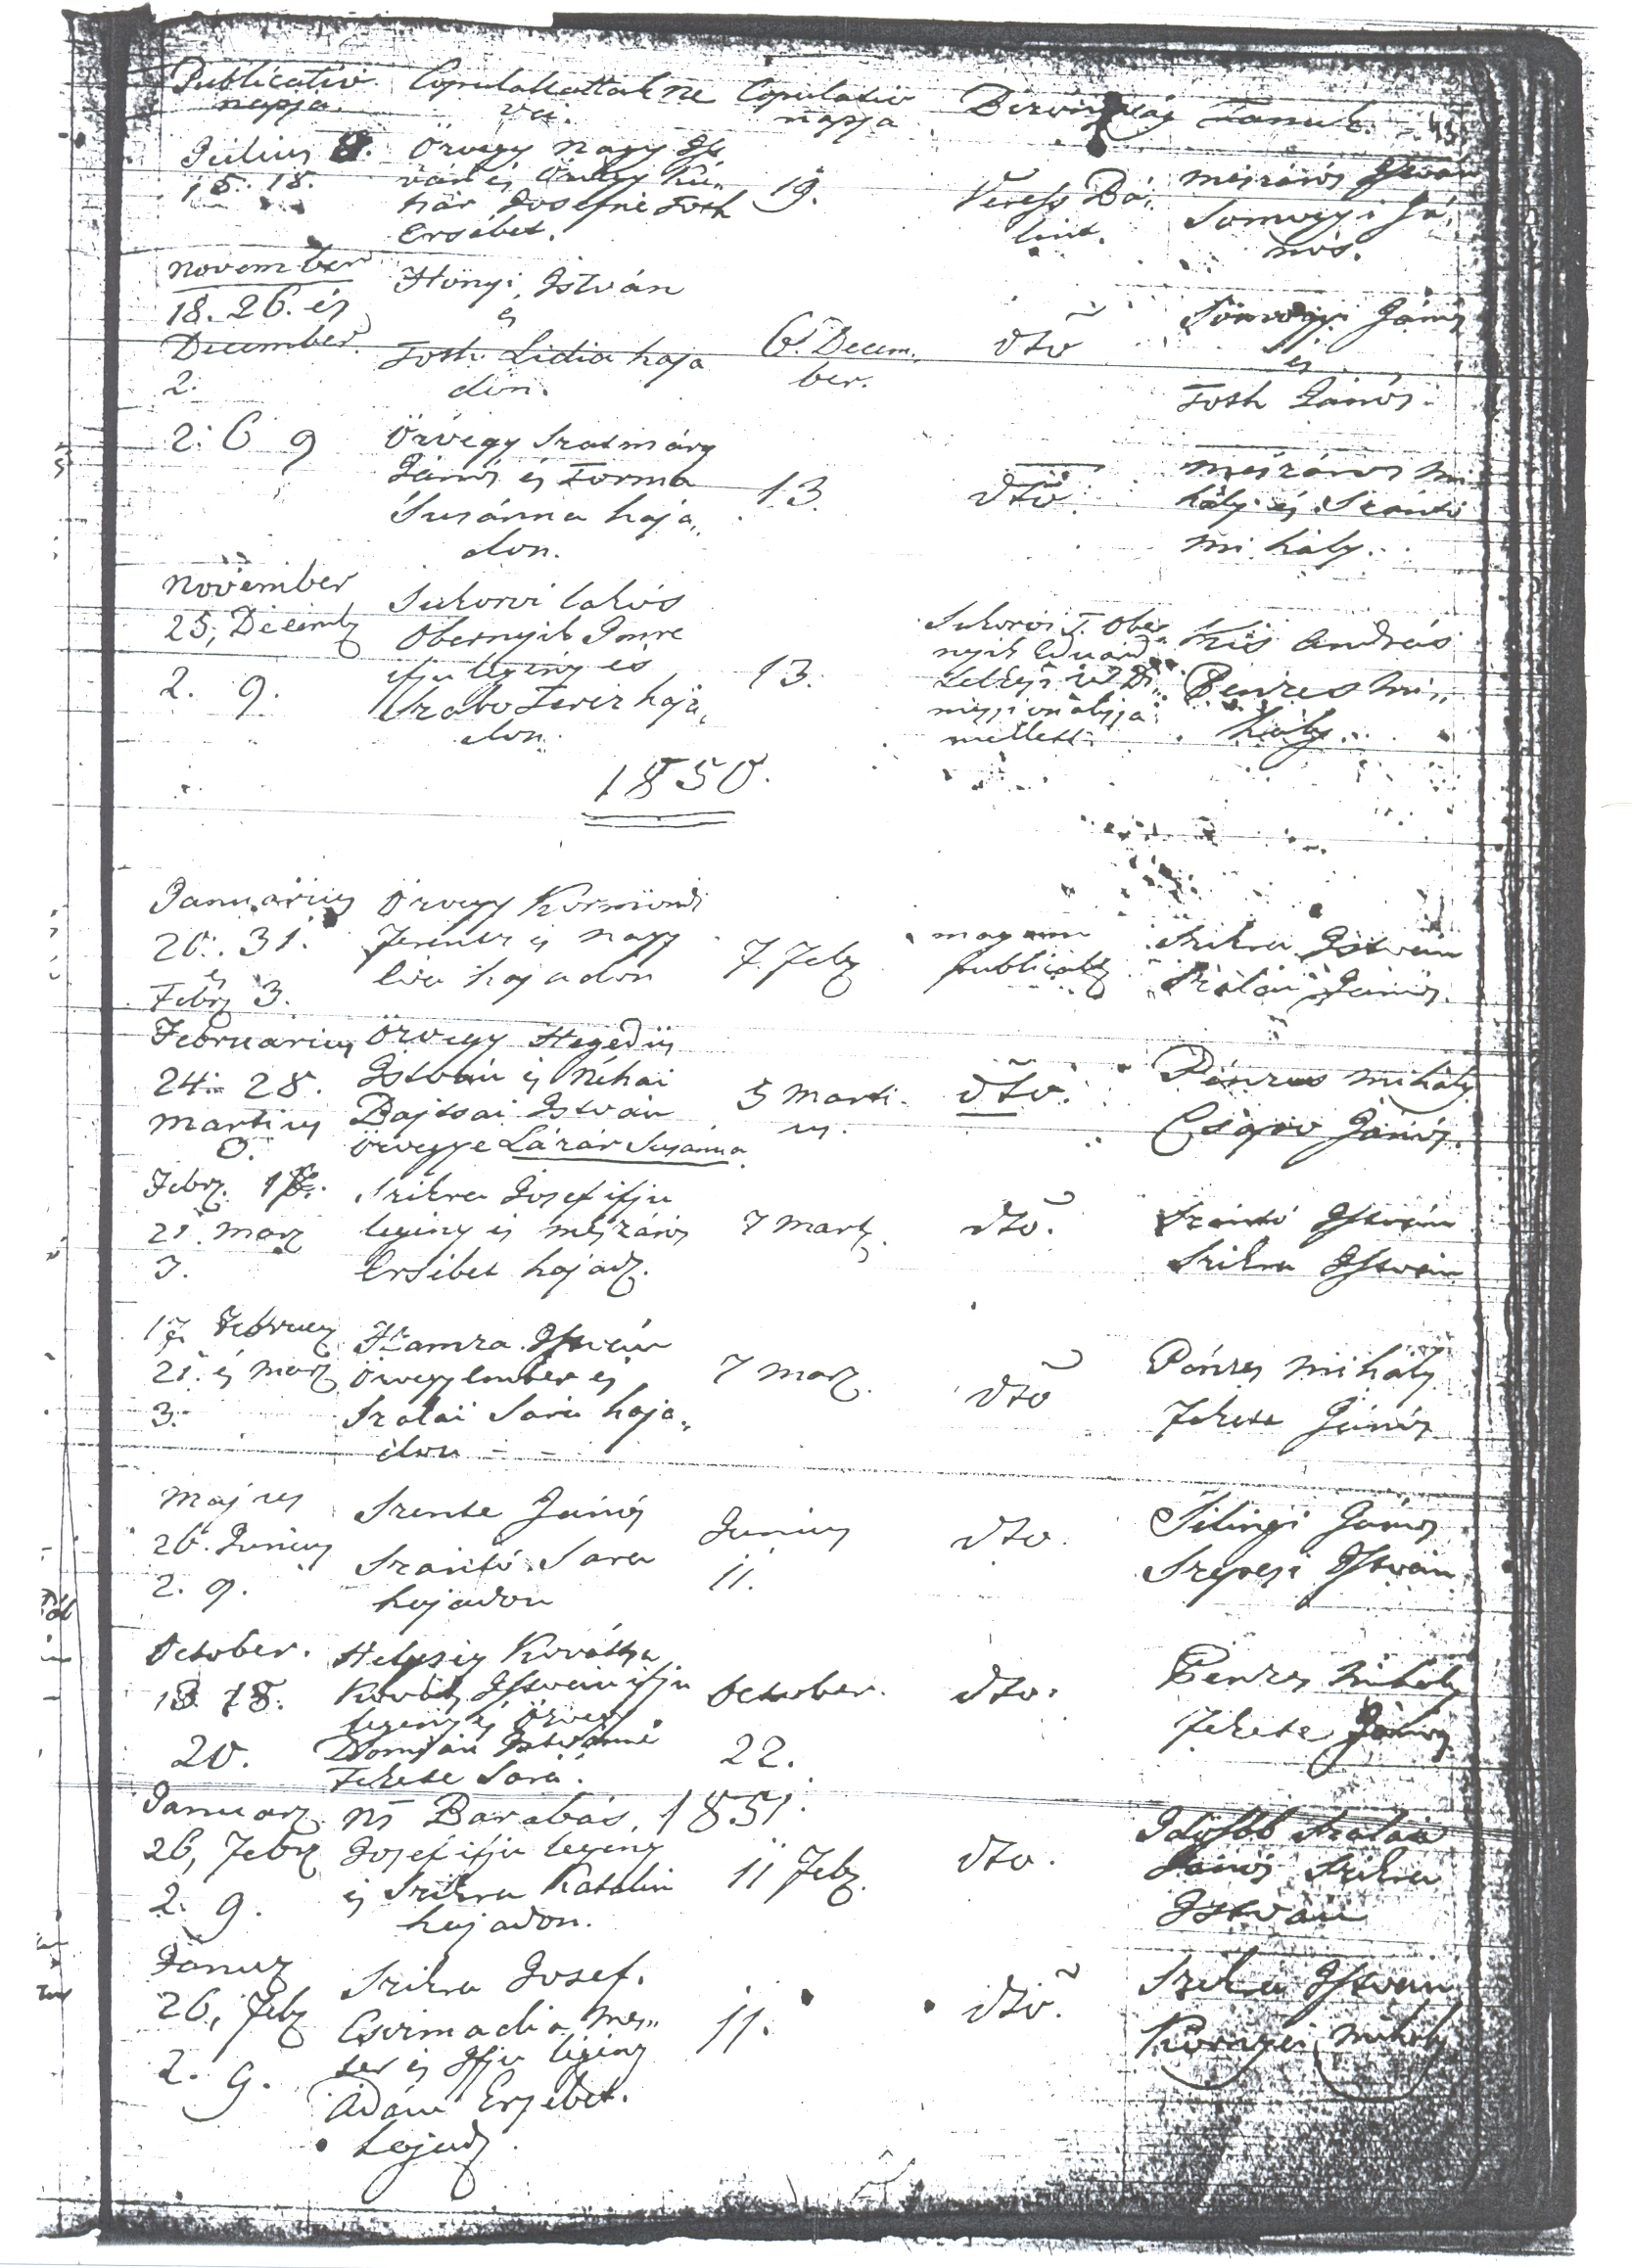 Publicatio napja. Copulaltattak ne vei. Copulatio napja Bizonyság Tanuk.
Julius 8. 15. 18.
Özvegy Nagy Ist
ván és Özvegy
Josefné Toth
Ersébet.
19.
Veress Bá,
lint.
Mészáros István
Somogyi Já,
nos.
November
18. 26. és
December
2.
Hönyi István
és
Toth Lidia haja
don.
6. Decem.
ber.
dto
Somogyi János
és
Toth János.
2. 6 9
Özvegy Szatmáry
János és Torma
Susánna haja,
don.
13.
dto.
Mészáros Mi
hály és Szántó
Mihály.
November
25, Decemb
2. 9.
Sukorói lakós
Obernyik Imre
ifju legény és
Szabo Teréz haja,
don.
13.
Sukorói T. Ober
nyik Eduard
mellett.
Kis András
Penzes Mi,
hály.
1850.
Januarius
20. 31.
és
Febr 3.
Özvegy Körmendi
Ferentz és Nagy
Éva hajadon
7. Feb
magam
Szikra István
Szalai János.
Februarius
24. 28.
Martius
3.
Özvegy Hegedüs
István és Néhai
Bajtsai István
özvegye Lázár Susánna
5 Marti
us.
dto.
Pénzes Mihály
Csapó János.
Febr.
21. Mar
3.
Szikra Josef ifju
legény és Mészáros
Ersébet hajad.
7 Mart.
dto.
Szántó István
Szikra István
17 Februar
21. és Mar
3.
Hamza István
Özvegy ember és
Szalai Sára haja,
don
7 Mar.
dto
Pénzes Mihály
Fekete János
Majus
26. Junius
2. 9.
Szente János
Szántó Sára
hajadon
Junius
11.
dto.
Silingi János
Szepesi István
October.
13. 18.
20.
Helység Kovátsa
Kováts István ifju
legény és Özvegy
Domján Istvánné
Fekete Sára.
October.
22.
dto.
Penzes Mihály
Fekete János
Januar
26, Febr
2. 9.
Barabás, 1851.
Josef ifju legény
és Szikra Katalin
hajadon.
11 Feb.
dto.
Idősbb Szalai
János Szikra
István
Januar
26, Feb
2. 9.
Szikra Josef.
Csizmadia Mes,,
ter és Ifju legény
Ádám Ersébet.
hajad.
11.
dto.
Szikra István
Környei Mihály